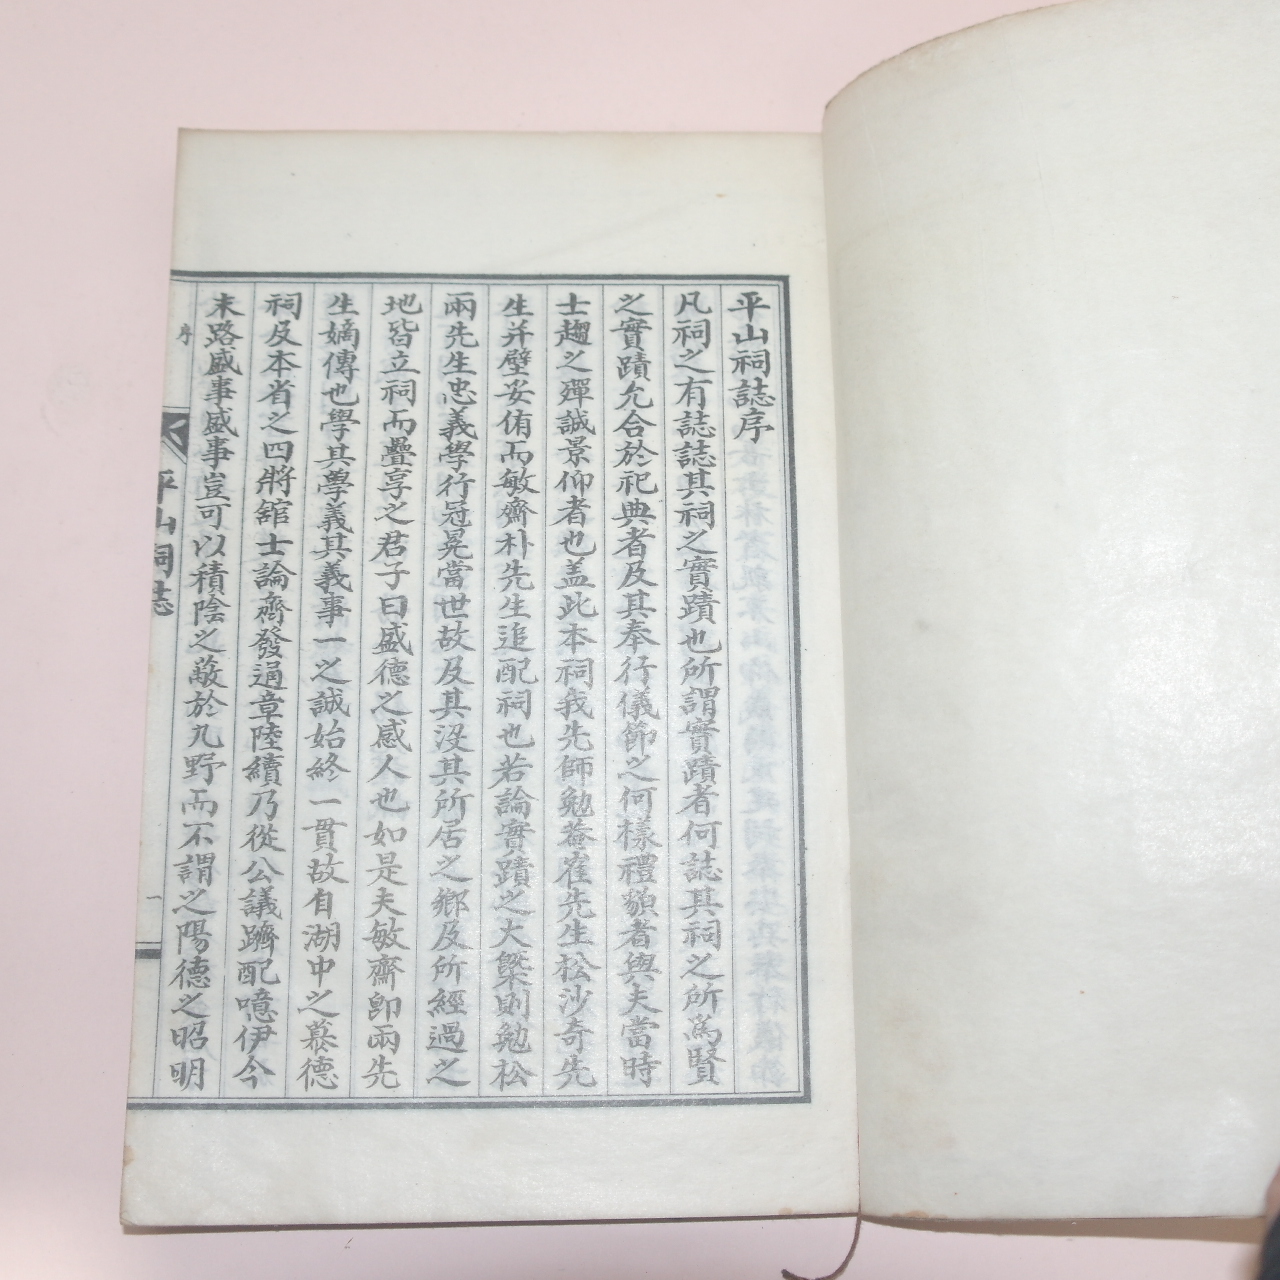 平山祠誌序
凡祠之有誌誌其祠之實蹟也所謂實蹟者何誌其祠之所爲賢
之實蹟允合於祀典者及其奉行儀節之何樣禮貌者與夫當時
士趨之殫誠景仰者也盖此本祠我先師勉菴崔先生松沙奇先
生并壁妥侑而敏齋朴先生追配祠也若論實蹟之大槩則勉松
兩先生忠義學行冠冕當世故及其沒其所居之鄕及所經過之
地皆立祠而疊享之君子曰盛德之感人也如是夫敏齋卽兩先
生嫡傳也學其學義其義事一之誠始終一貫故自湖中之慕德
祠及本省之四將舘士論齊發通章陸續乃從公議躋配噫伊今
末路盛事盛事豈可以積陰之蔽於九野而不謂之陽德之昭明
序
平山祠誌
一